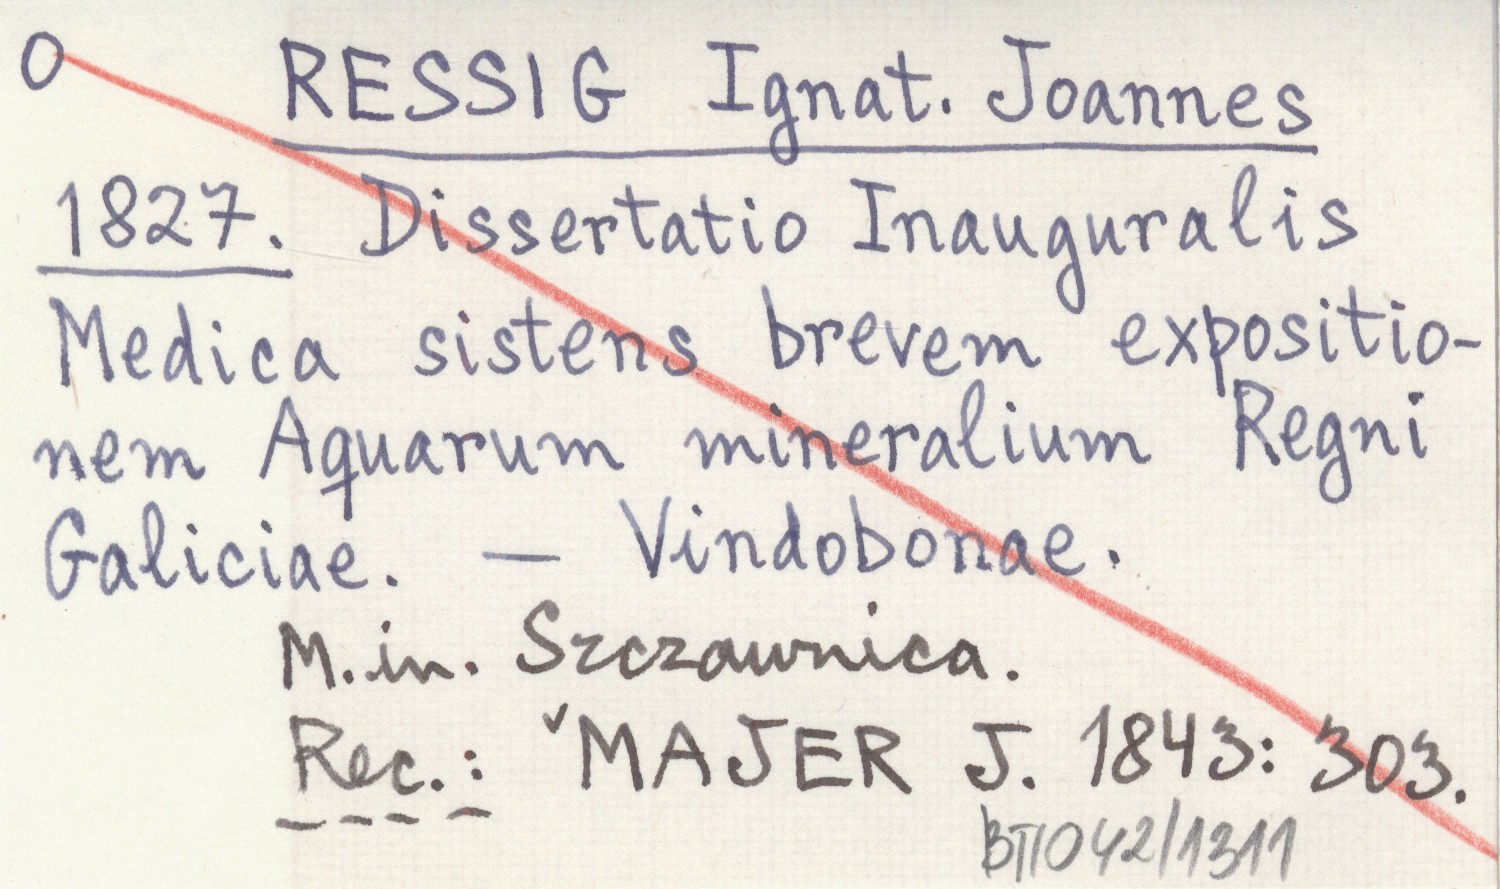 O RESSIG Ignat. Joannes
1827. Dissertatio Inauguralis
Medica sistens brevem expositio-
nem Aquarum mineralium Regni
Galiciae. — Vindobonae.
M.in. Szczawnica.
Rec.: ᵛMAJER J. 1843: 303.
BTTO42/1311